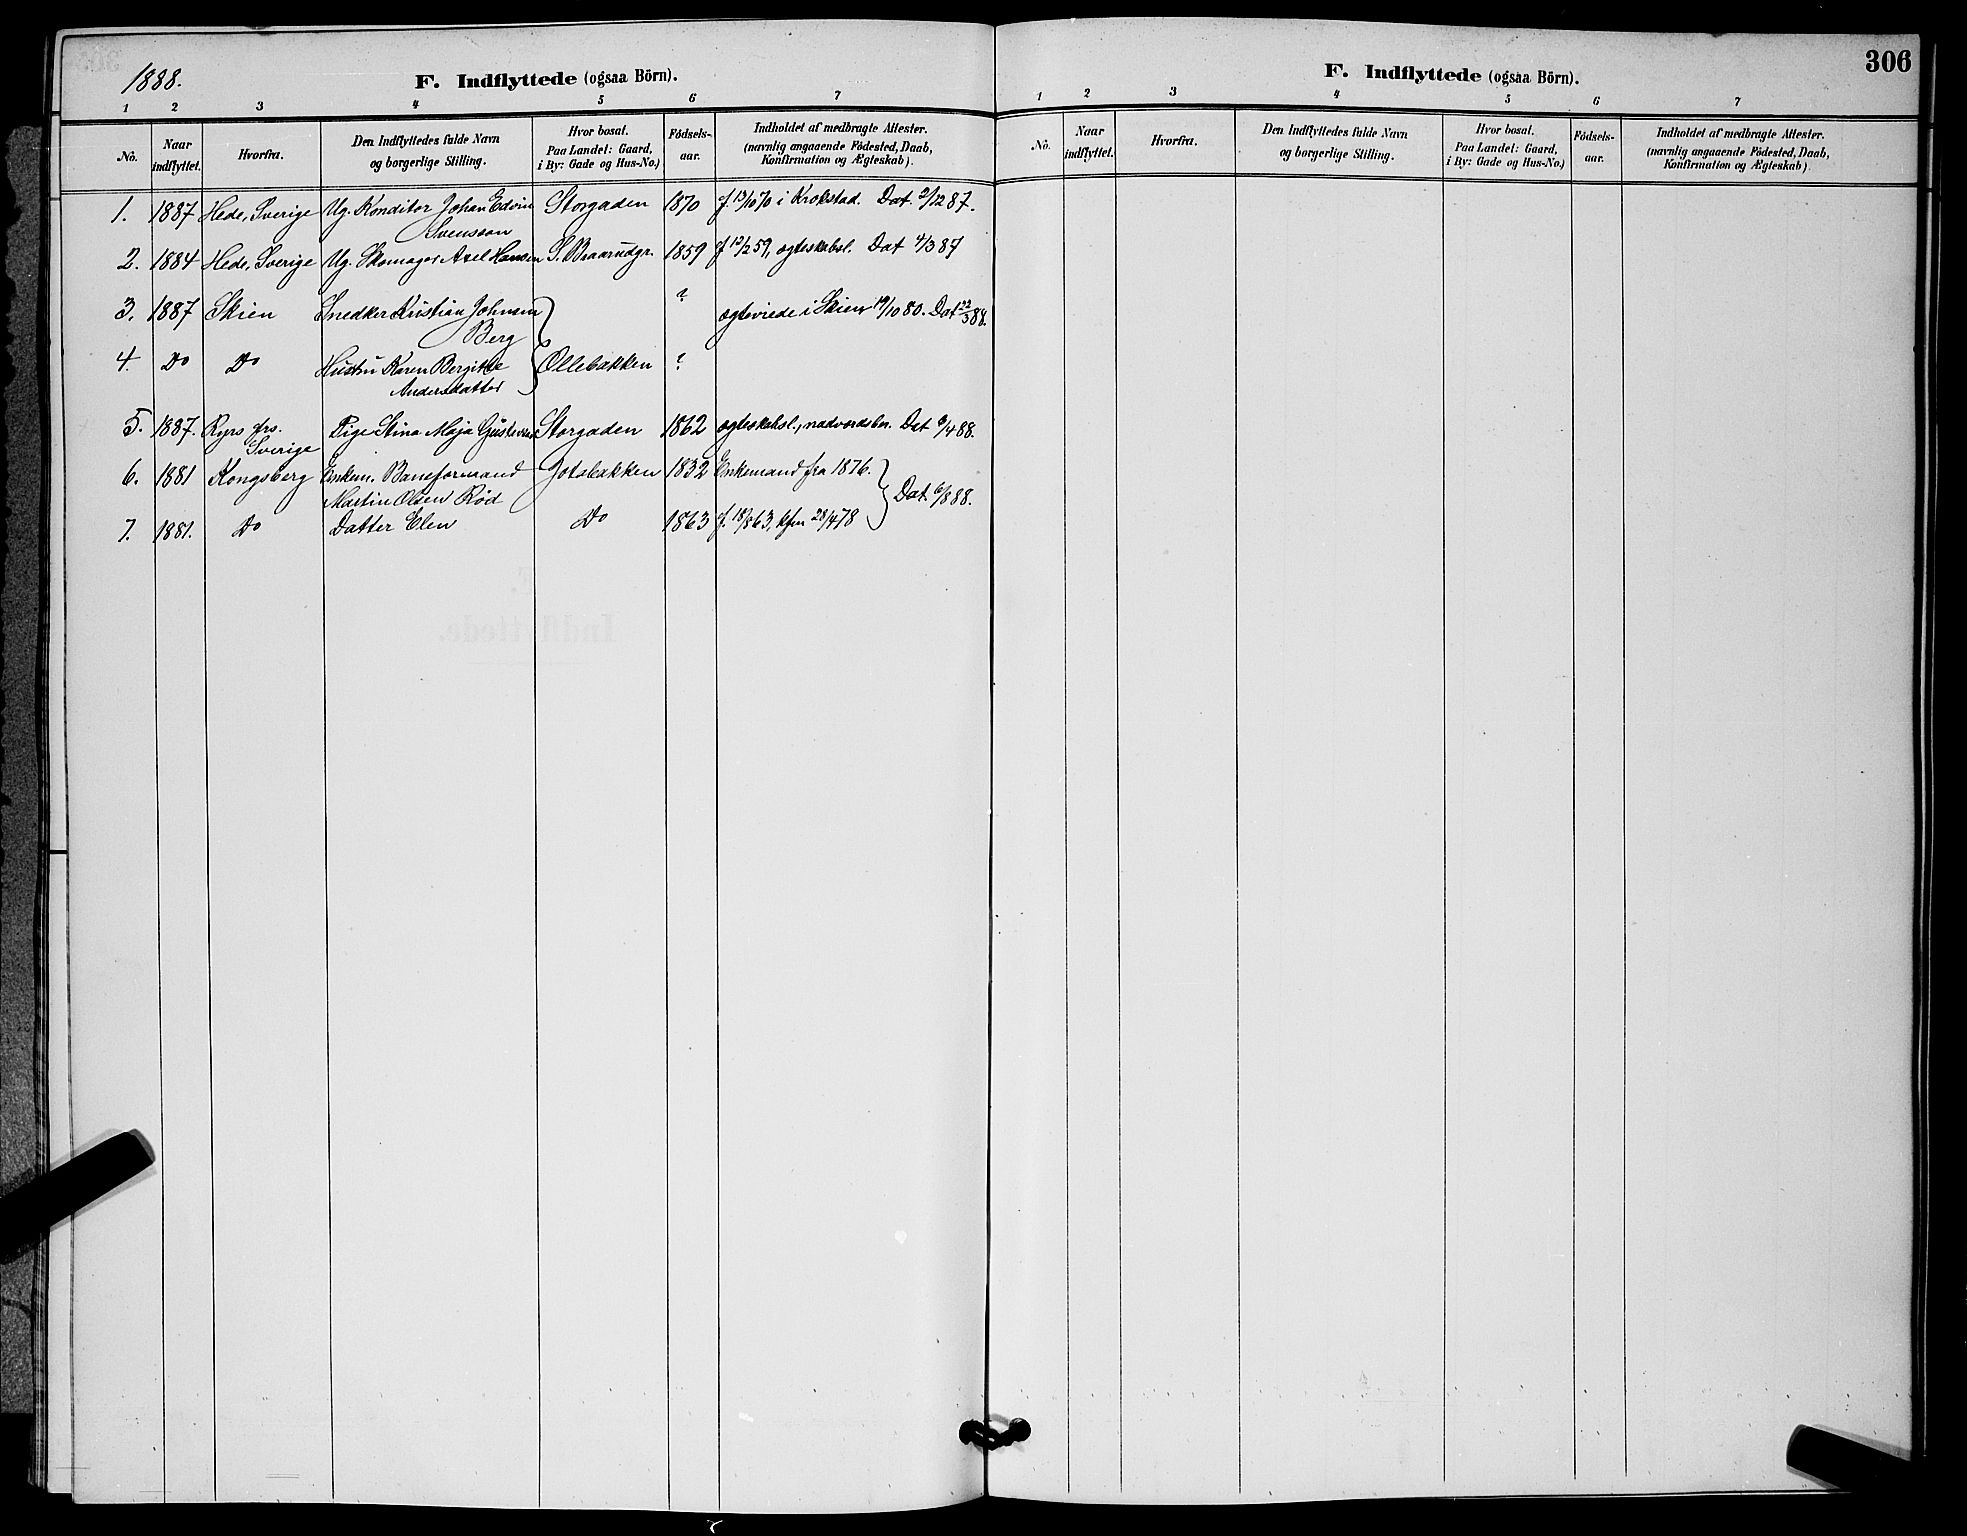 1888.
F. Indflyttede (ogsaa Börn).
1 2 3 4 5 6 7
No.
Naar indflyttet.
Hvorfra.
Den Indflyttedes fulde Navn og borgerlige Stilling.
Hvor bosat. Paa Landet: Gaard, i By: Gade og Hus-No.)
Födsels-aar.
Indholdet af medbragte Attester. (navnlig angaaende Födested, Daab, Konfirmation og Ægteskab).
1. 1887 Hede, Sverige Ug. Konditor Johan Edvin Storgaden 1870 f. 13/10 70 i Krokstad. Dat. 2/12 87.
Svensson
2. 1884 Hede, Sverige Ug. Skomager Axel Hansen S. Braarudgr. 1859 f 12/2 59, ægteskabsl. Dat 4/3 87
3. 1887 Skien Snedker Kristian Johnsen ? ægteviede i Skien 19/10 80. Dat 22/3 88.
Berg
4. Do Do Hustru Karen Bergitte Ollebakken ?
Andersdatter
5. 1887. Ryrs Pige Stina Maja Storgaden 1862 ægteskabsl., nadverdsber. Dat 9/4 88.
Sverige
6. 1881 Kongsberg Enkem. Baneformand 1832 Enkemand fra 1876.
Martin Olsen Rød Dat. 6/8 88.
7. 1881. Do Datter Elen Do 1863 f. 18/8 63, kfm 28/4 78
306
F. Indflyttede (ogsaa Börn).
1 2 3 4 5 6 7
No.
Naar indflyttet.
Hvorfra.
Den Indflyttedes fulde Navn og borgerlige Stilling.
Hvor bosat. Paa Landet: Gaard, i By: Gade og Hus-No.)
Födsels-aar.
Indholdet af medbragte Attester. (navnlig angaaende Födested, Daab, Konfirmation og Ægteskab).